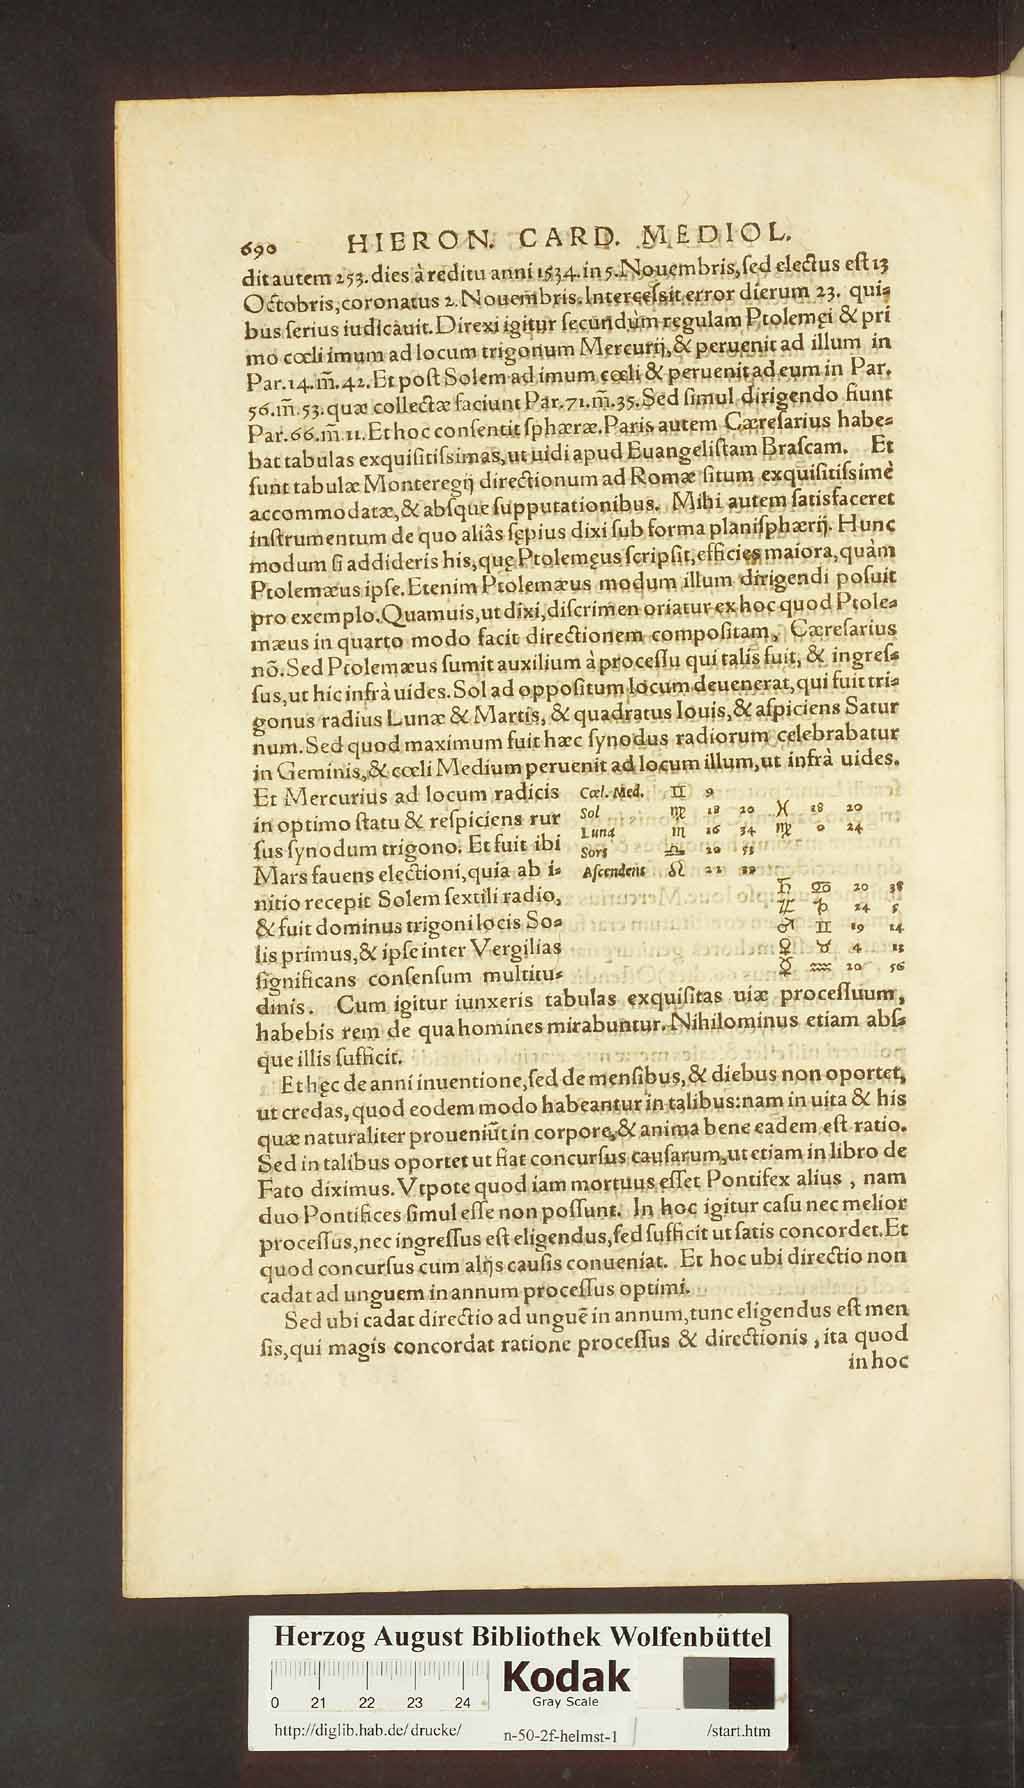 690 HIERON. CARD. MEDIOL.
dit autem 253. dies à reditu anni 1534. in 5. Nouembris, sed electus est 13
Octobris, coronatus 2. Nouembris. Intercessit error dierum 23. qui-
bus serius iudicauit. Direxi igitur secundùm regulam Ptolemęi & pri
mo cœli imum ad locum trigonum Mercurij, & peruenit ad illum in
Par. 14. m̃. 42. Et post Solem ad imum cœli & peruenit ad eum in Par.
56. m̃. 53. quæ collectæ faciunt Par. 71. m̃. 35. Sed simul dirigendo fiunt
Par. 66. m̃. 11. Et hoc consentit sphæræ. Paris autem Cæresarius habe-
bat tabulas exquisitissimas, ut uidi apud Euangelistam Brascam. Et
sunt tabulæ Monteregij directionum ad Romæ situm exquisitissimè
accommodatæ, & absque supputationibus. Mihi autem satisfaceret
instrumentum de quo aliâs sępius dixi sub forma planisphærij. Hunc
modum si addideris his, quę Ptolemęus scripsit, efficies maiora, quàm
Ptolemæus ipse. Etenim Ptolemæus modum illum dirigendi posuit
pro exemplo. Quamuis, ut dixi, discrimen oriatur ex hoc quod Ptole-
mæus in quarto modo facit directionem compositam, Cæresarius
nõ. Sed Ptolemæus sumit auxilium à processu qui talis fuit, & ingres-
sus, ut hic infrà uides. Sol ad oppositum locum deuenerat, qui fuit tri-
gonus radius Lunæ & Martis, & quadratus Iouis, & aspiciens Satur
num. Sed quod maximum fuit hæc synodus radiorum celebrabatur
in Geminis, & cœli Medium peruenit ad locum illum, ut infrà uides.
Et Mercurius ad locum radicis
in optimo statu & respiciens rur
sus synodum trigono. Et fuit ibi
Mars fauens electioni, quia ab i-
nitio recepit Solem sextili radio,
& fuit dominus trigoni locis So-
lis primus, & ipse inter Vergilias
significans consensum multitu-
Cœl. Med. ♊ 9
Sol ♍ 18 20 ♓ 18 20
Luna ♏ 16 34 ♍ 0 24
Sors ♎ 20 53
Ascendens ♌ 22
♄ ♋ 20 38
♃ ♑ 24 5
♂ ♊ 19 14
♀ ♉ 4 13
☿ ♒ 20 56
dinis. Cum igitur iunxeris tabulas exquisitas uiæ processuum,
habebis rem de qua homines mirabuntur. Nihilominus etiam abs-
que illis sufficit.
Et hęc de anni inuentione, sed de mensibus, & diebus non oportet,
ut credas, quod eodem modo habeantur in talibus: nam in uita & his
quæ naturaliter proueniũt in corpore, & anima bene eadem est ratio.
Sed in talibus oportet ut fiat concursus causarum, ut etiam in libro de
Fato diximus. Vtpote quod iam mortuus esset Pontifex alius, nam
duo Pontifices simul esse non possunt. In hoc igitur casu nec melior
processus, nec ingressus est eligendus, sed sufficit ut satis concordet. Et
quod concursus cum alijs causis conueniat. Et hoc ubi directio non
cadat ad unguem in annum processus optimi.
Sed ubi cadat directio ad unguẽ in annum, tunc eligendus est men
sis, qui magis concordat ratione processus & directionis, ita quod
in hoc
Herzog August Bibliothek Wolfenbüttel
0 21 22 23 24
Kodak
Gray Scale
http://diglib.hab.de/drucke/ n-50-2f-helmst-1 /start.htm